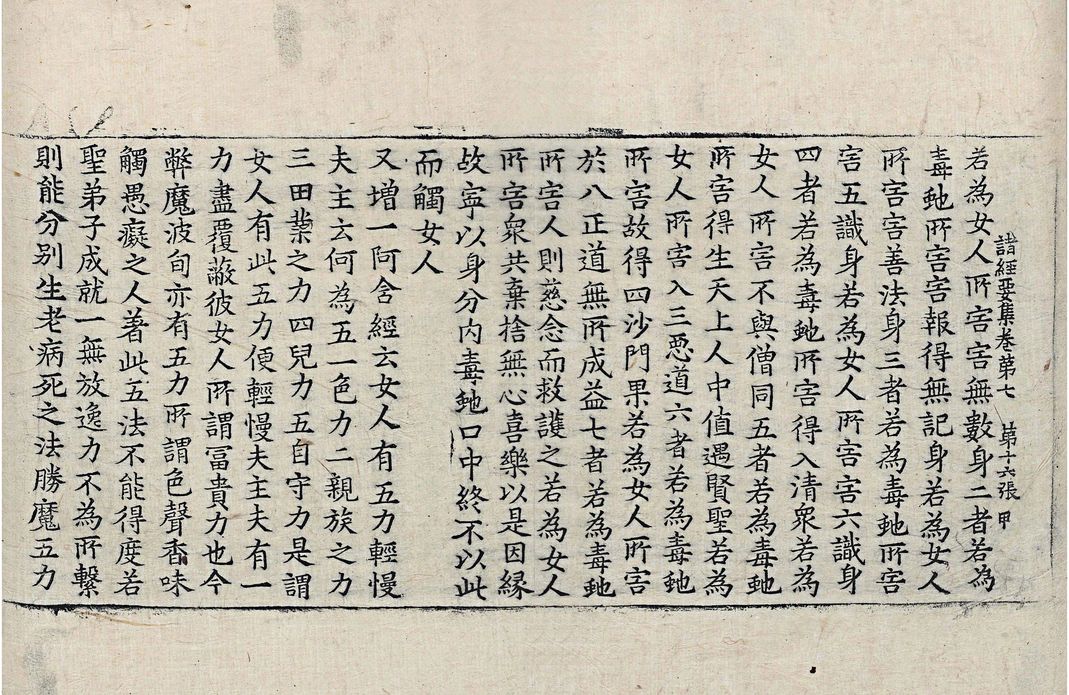 諸經要集卷第七　第十六張　甲
若為女人所害害無數身二者若為
毒虵所害害報得無記身若為女人
所害害善法身三者若為毒虵所害
害五識身若為女人所害害六識身
四者若為毒虵所害得入清衆若為
女人所害不與僧同五者若為毒虵
所害得生天上人中值遇賢聖若為
女人所害入三惡道六者若為毒虵
所害故得四沙門果若為女人所害
於八正道無所成益七者若為毒虵
所害人則慈念而救護之若為女人
所害衆共棄捨無心喜樂以是因緣
故寧以身分內毒虵口中終不以此
而觸女人
又增一阿含經云女人有五力輕慢
夫主云何為五一色力二親族之力
三田業之力四兒力五自守力是謂
女人有此五力便輕慢夫主夫有一
力盡覆蔽彼女人所謂冨貴力也今
弊魔波旬亦有五力所謂色聲香味
觸愚癡之人著此五法不能得度若
聖弟子成就一無放逸力不為所繫
則能分别生老病死之法勝魔五力